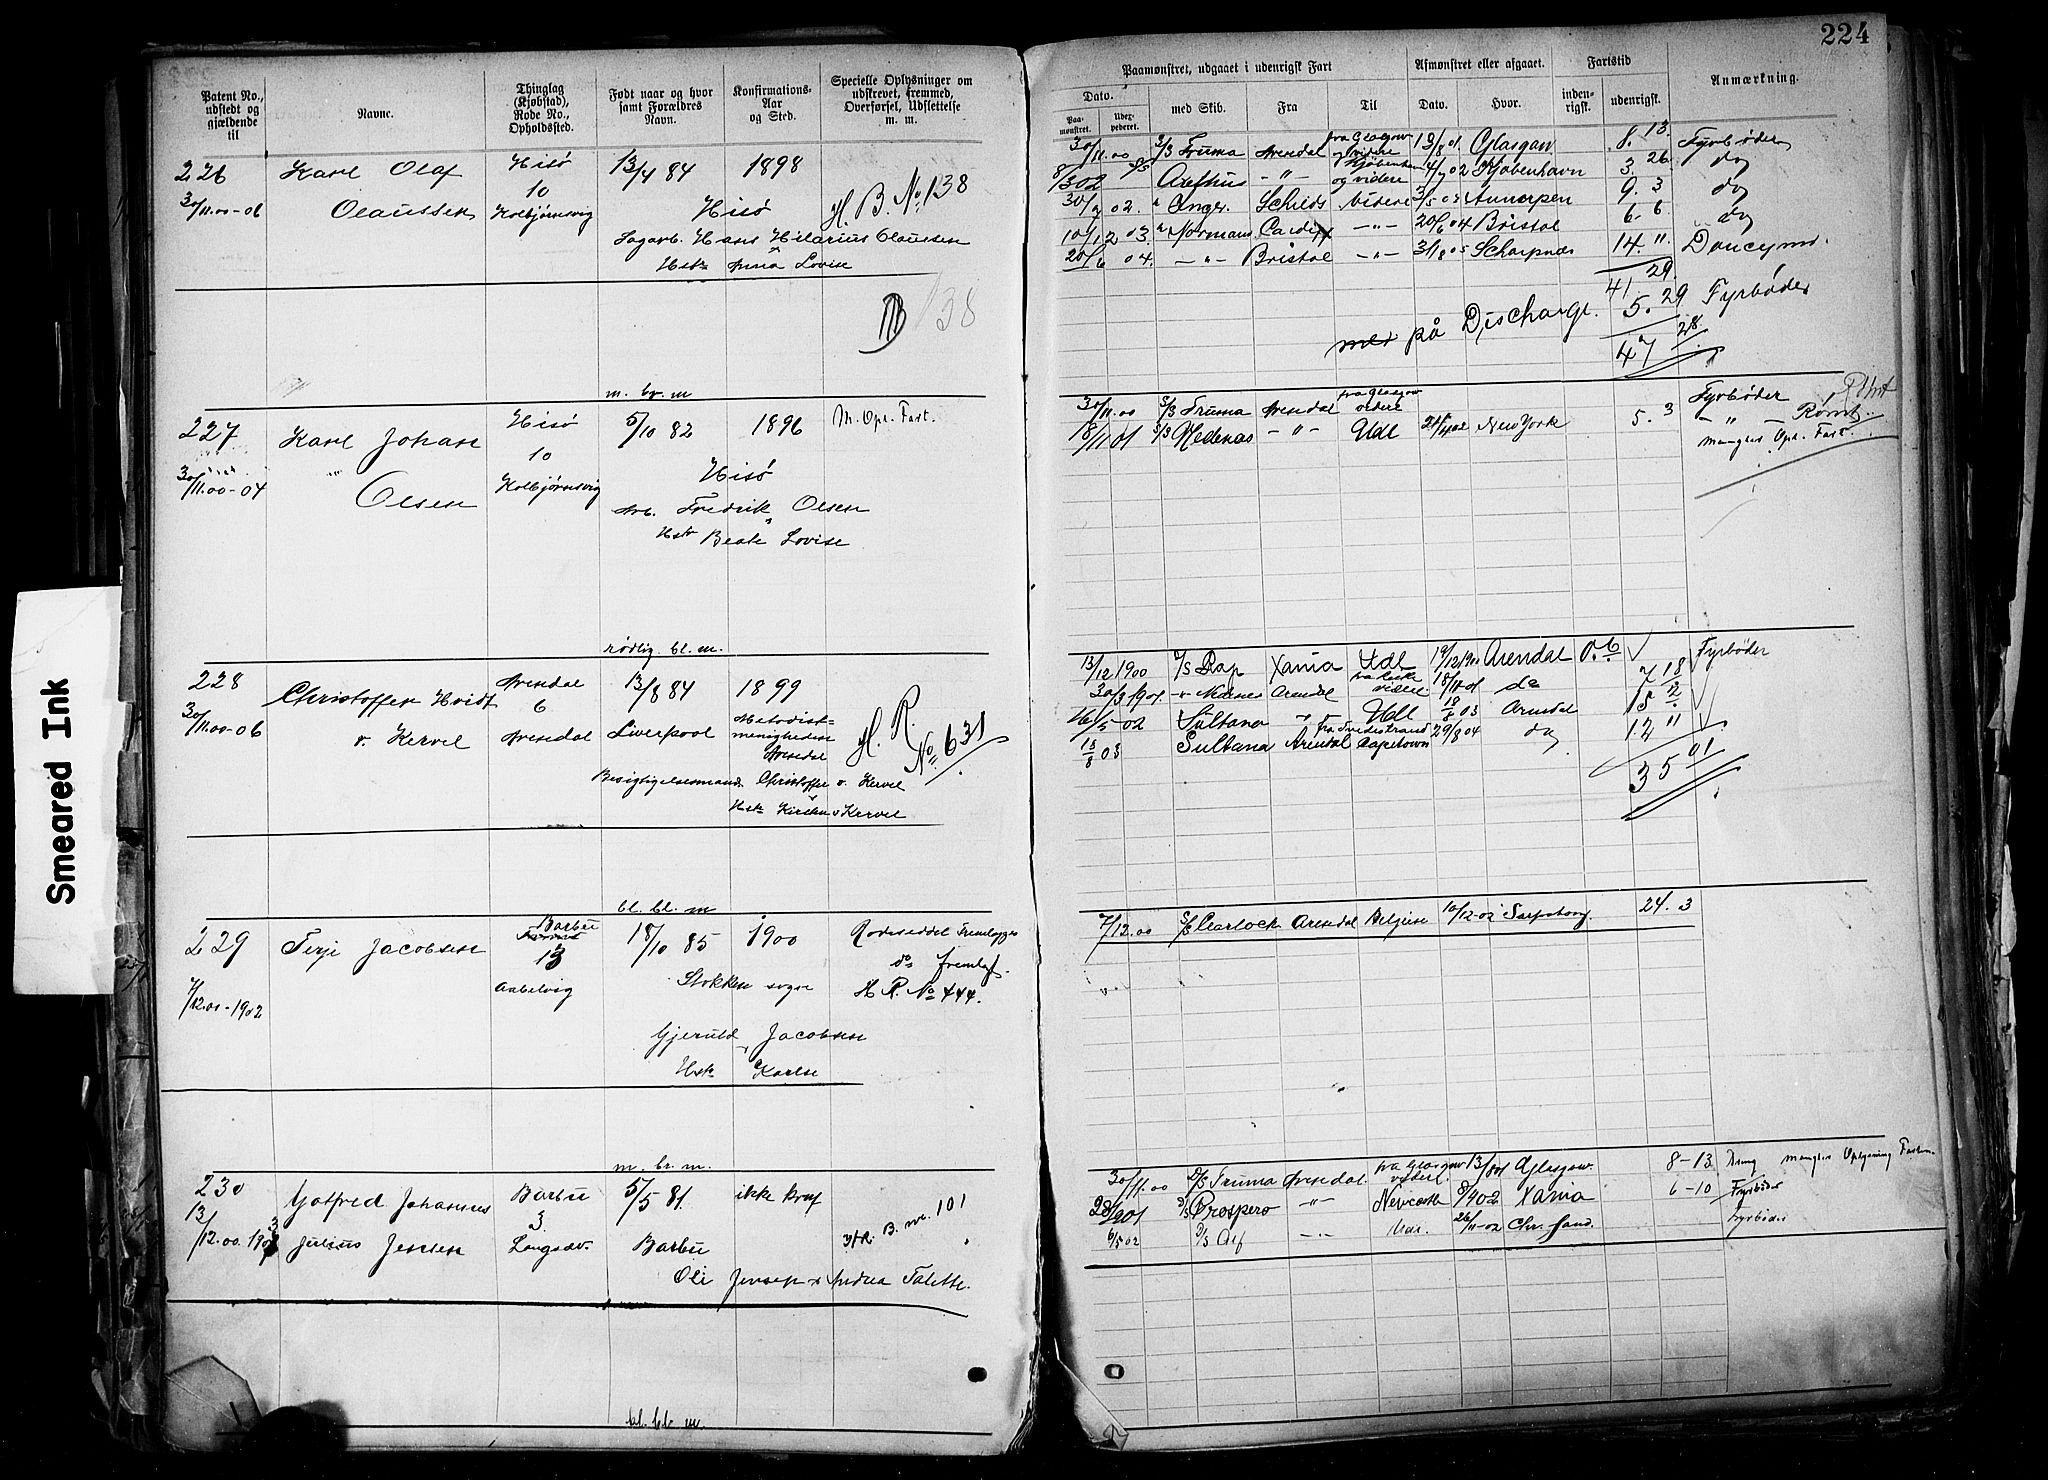 224
Patent No., udstedt og gjældende til
Navne.
Thinglag (Kjøbstad), Rode No., Opholdssted.
Født naar og hvor samt Forældres Navn.
Konfirmations-Aar og Sted.
Specielle Oplysninger om udskrevet, fremmed, Overførsel, Udslettelse m. m.
Paamønstret, udgaaet i udenrigsk Fart
Afmønstret eller afgaaet.
Fartstid
Anmærkning.
Dato.
Paamønstret.
Udexpederet.
med Skib.
Fra
Til
Dato.
Hvor.
indenrigsk.
udenrigsk.
226
30/11.00-06
Karl Olaf
Olaussen
Hisö
10
Kolbjørnsvig
13/4 84
1898
Hisö
H. B. No. 138
Sagarb. Hans Hilarius Olaussen
Hstr Anna Lovise
138
m. br. m
30/11.00 S/S Fruma Arendal fra Glasgow og videre 13/8 01 Glasgow 8. 13 Fyrbøder
8/3 02 Kjøbenhavn og videre Kjøbenhavn 3. 26 do
30/7 02. Videre 9. 3 do
10/12 03. Normans Cardiff -"- 20/6 04 Bristol 6. 6 do
20/6 04. -"- Bristol -"- 31/8 05 Scharpnæs 14. "
41. 29
på Discharge. 5. 29 Fyrbøder
47 28
227
30/11.00-04
Karl Johan
Olsen
Hisö
10
Kolbjørnsvig
5/10 82
1896
Hisö
M. Opl. Fart.
Arb. Fredrik Olsen
Hstr Beate Lovise
rødlig. bl. m.
30/11.00 S/S Fruma Arendal fra Glasgow videre 5. 3 Fyrbøder
18/11 01 S/S Hedenæs -"- Udl New York -"- Rømt.
mangler Opl. Fart.
228
30/11.00-06
Christoffer Hvidt
v. Kervel
Arendal
6
Arendal
13/8 84
Liverpool
1899
Metodist-menigheden
Arendal
H. R. No. 631
Besigtigelsesmand Christoffer v. Kervel
Hstr Kirsten v Kervel
bl. bl. m
13/12 1900 S/S Rap Xania Udl 19/12 1900 Arendal 0. 6 Fyrbøder
30/3 1901 Arendal videre 18/11 01 do 7 18
16/5 02 Sultana -"- Udl 18/8 03 Arendal 15 2
18/8 03 Sultana Arendal fra Tvedestrand Capetown 29/8 04 do 12 "
35 01
229
7/12.00-1902
Terje Jacobsen
Barbu
13
18/10 85
1900
Stokken sogn
Rodeseddel fremlægges
do fremlagt.
H R. No 444.
Gjeruld Jacobsen
Hstr Karen
m. br. m.
7/12.00 S/S Clarlock Arendal Belgien 10/12-02 Sarpsborg 24. 3
230
13/12.00.1903
Gotfred Johannes
Julius Jensen
Barbu
3
Langsæv.
5/5 81.
ikke konf
Barbu
H. R. B. no. 101
Oli Jensen & Andrea Talette.
bl. bl. m.
30/11.00 D/S Fruma Arendal fra Glasgow videre 13/8 01 Glasgow 8-13 mangler Oplysning Farten
28/9 01 D/S Prospero -"- Newcastle 8/4 02 Xania 6-10 Fyrbøder
6/5 02 D/S Alf -"- 26/11-02 Chr. sand. Fyrbøder
Smeared Ink